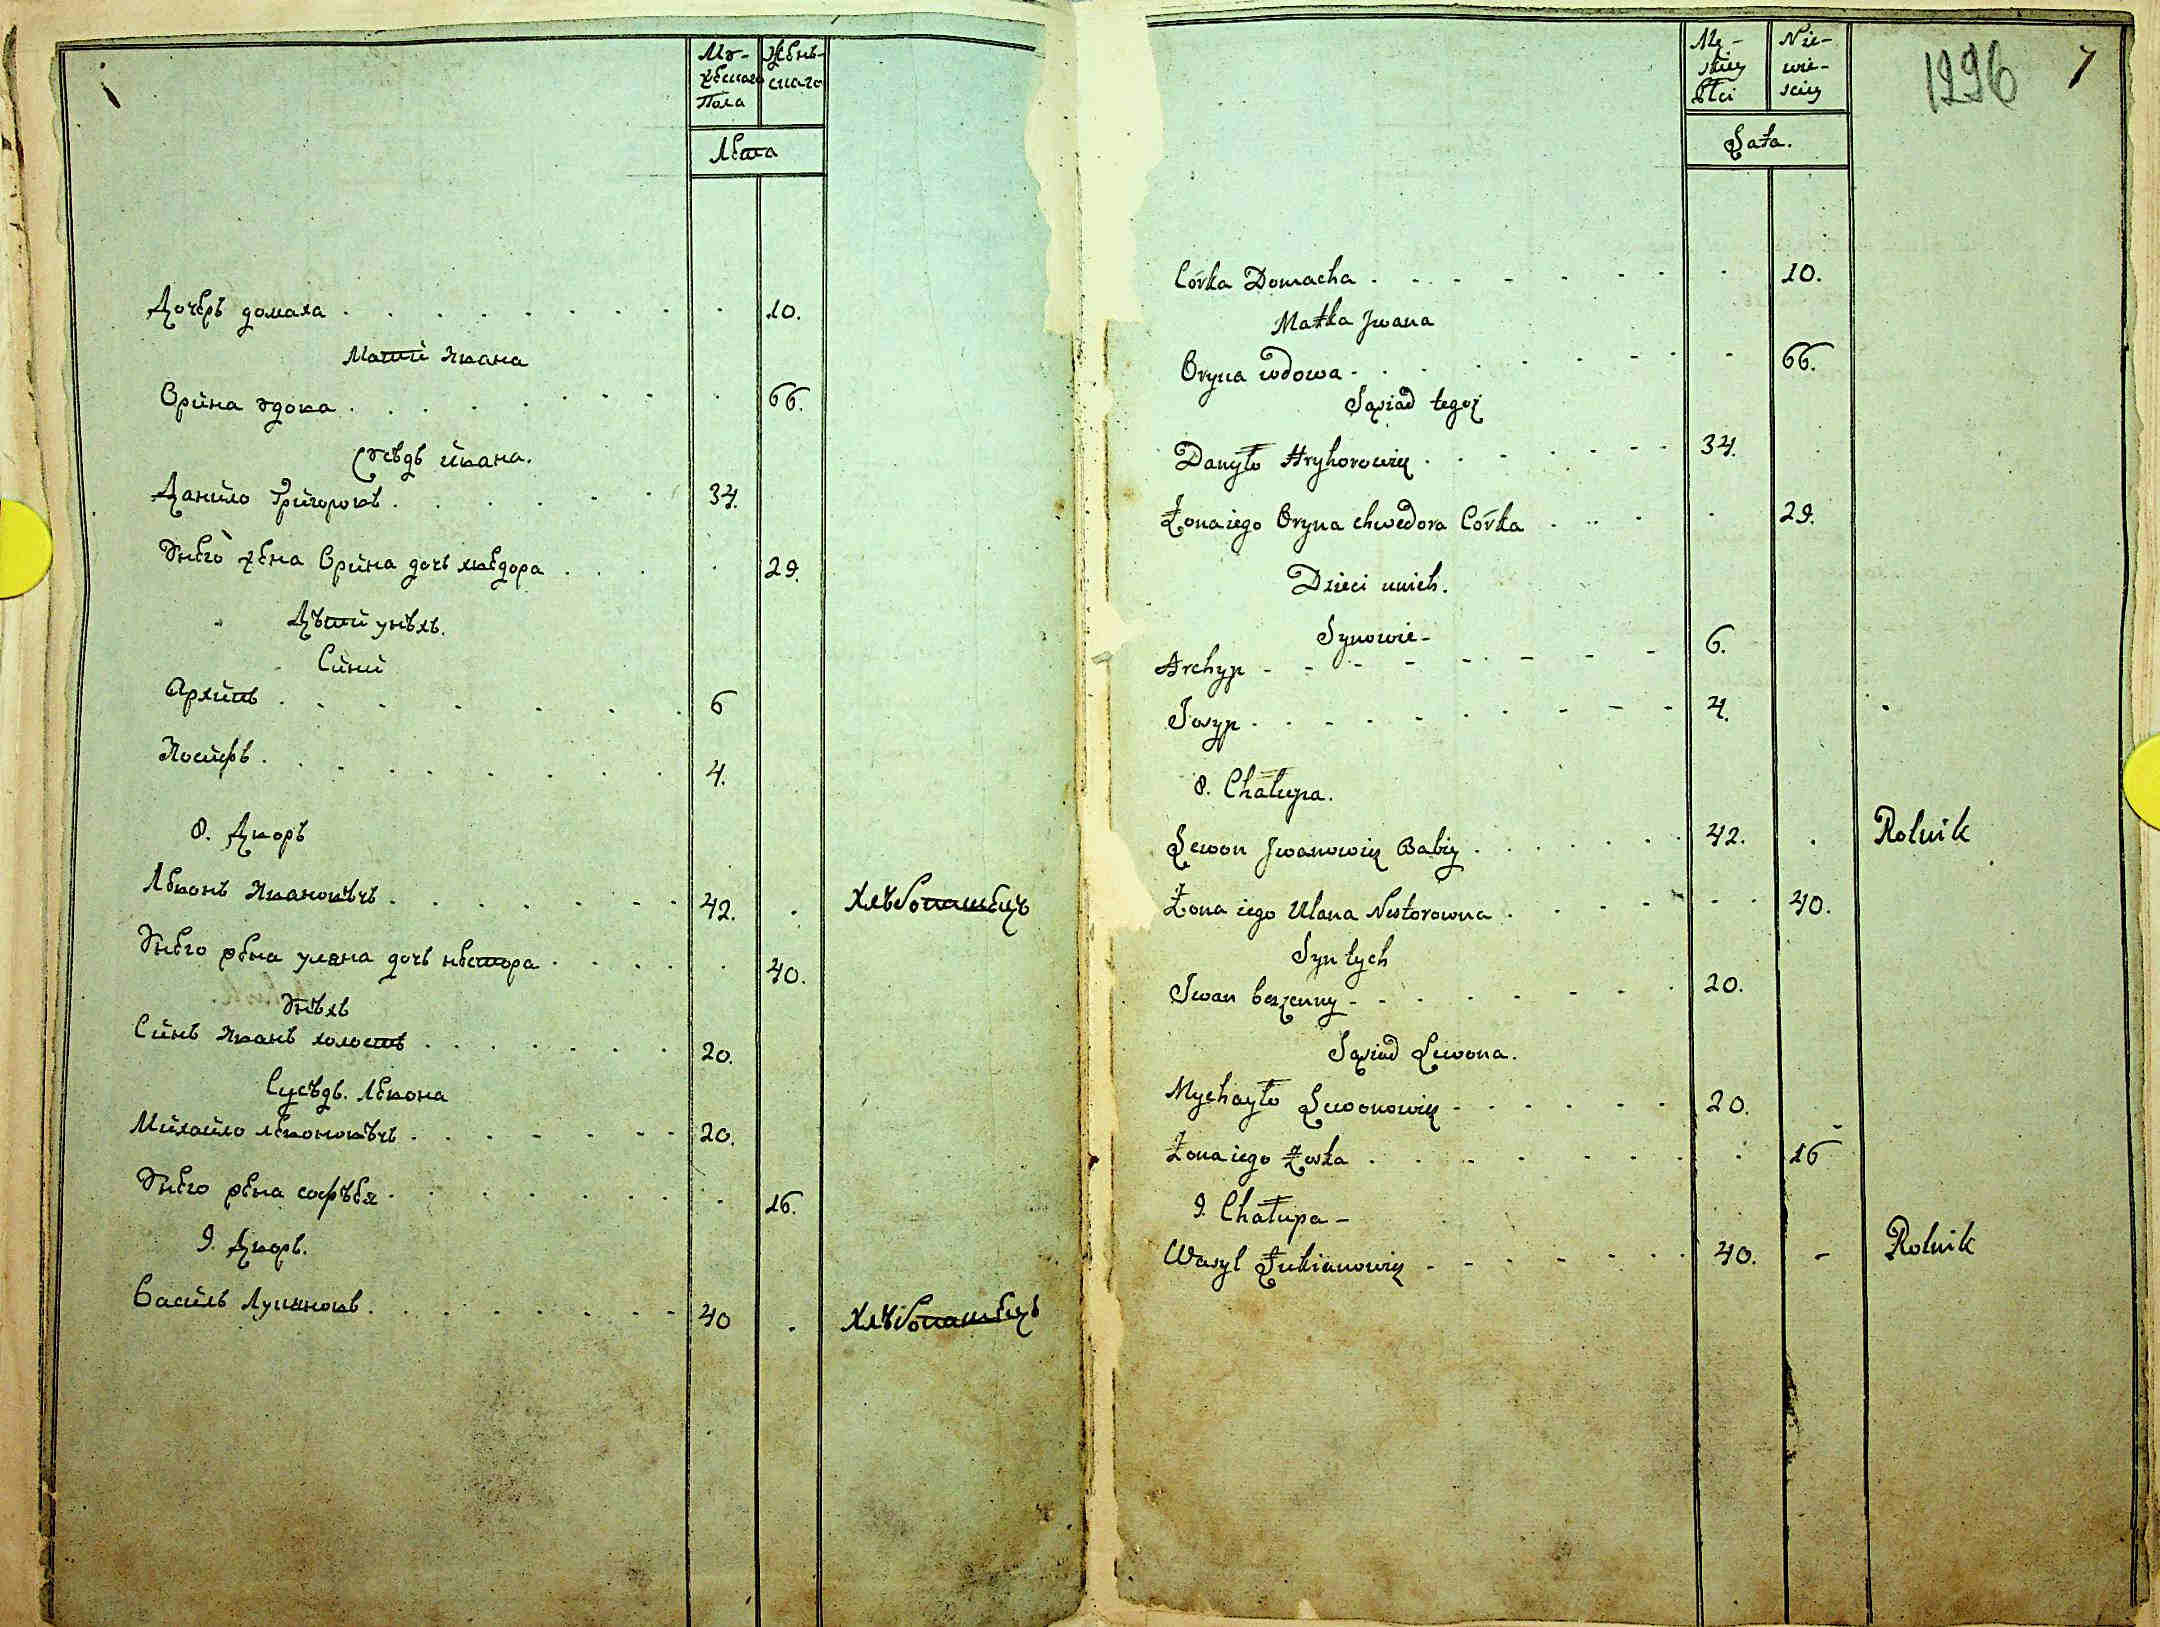 Му-
жескаго
Пола
Жень-
скаго
Лета
Дочерь домаха 10.
Матий Ивана
Орина удова 66.
Сусѣдъ ивана.
Данило Григоровъ 34.
Унего жена Орина дочь хведора 29.
Дѣтий унѣхъ.
Сини
Архипъ 6
Иосифъ 4.
8. Дворъ
Левонъ Ивановѣчъ 42. Хлѣбопашецъ
Унего жена уляна дочь нестора 40.
Унѣхъ
Синъ Иванъ холостъ 20.
Сусѣдъ. Левона
Михайло левоновѣчъ 20.
Унего жена софѣея 16.
9. Дворъ.
Василь Лукяновъ 40 Хлѣбопашецъ
1296
7
Mę-
skiey
Płci
Nie-
wie-
sciey
Lata.
Córka Domacha 10.
Matka Jwana
Oryna wdowa 66.
Sąsiad tegoż
Danyło Hryhorowicz 34.
Żona iego Oryna chwedora Córka 29.
Dzieci unich.
Synowie
Archyp 6.
Josyp 4.
8. Chałupa.
Lewon Jwanowicz Babiy 42. Rolnik
Żona iego Ulana Nestorowna 40.
Syn tych
Jwan bezżenny 20.
Sąsiad Lewona.
Mychayło Lewonowicz 20.
Żona iego Zoska 16
9. Chałupa
Wasyl Łukianowicz 40. Rolnik